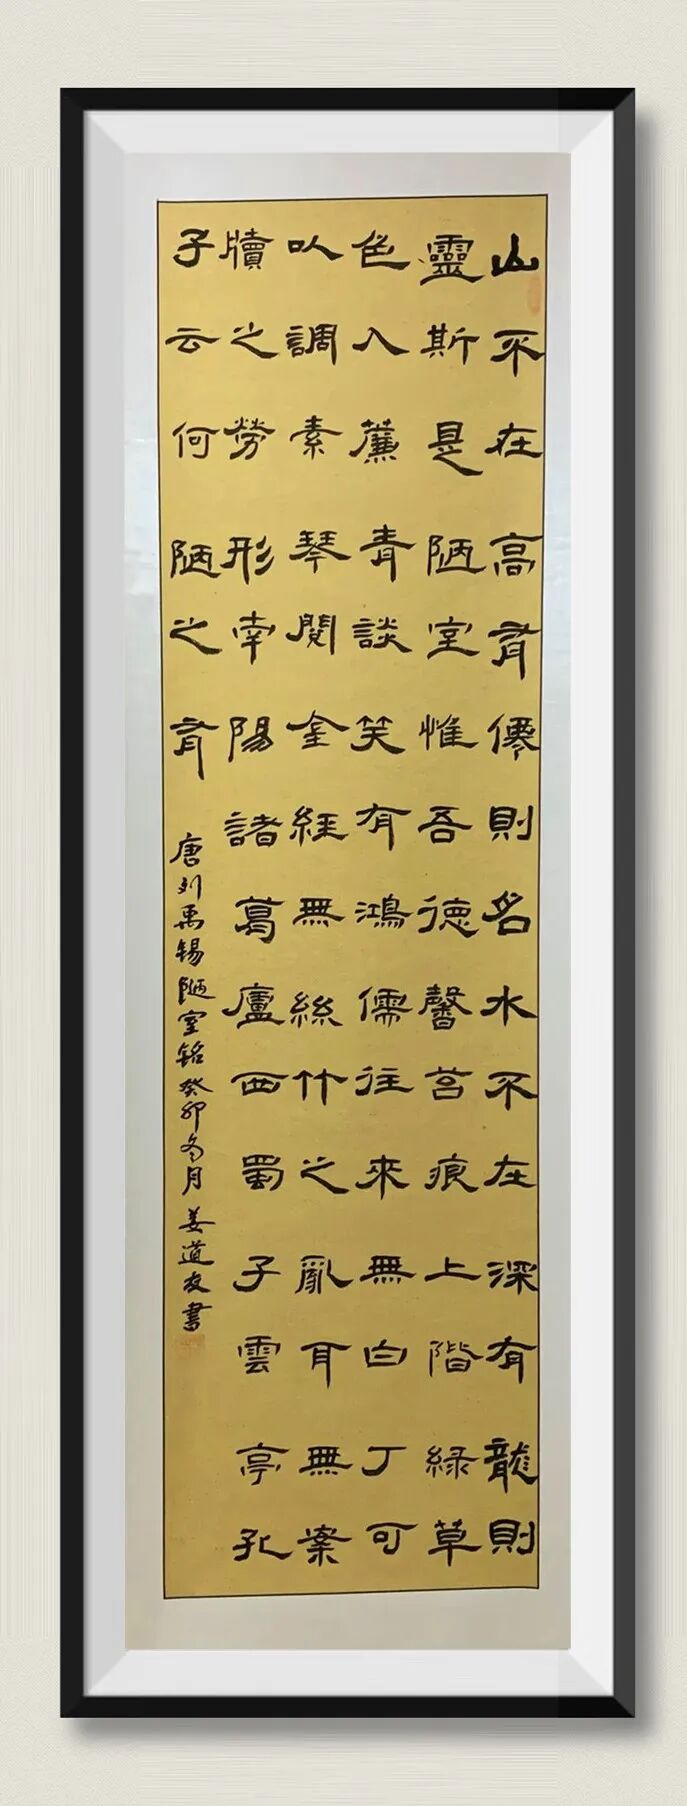 山不在高有僊則名水不在深有龍則
靈斯是陋室惟吾德馨苔痕上階綠草
色入簾青談笑有鴻儒往來無白丁可
以調素琴閱金經無絲竹之亂耳無案
牘之勞形南陽諸葛廬西蜀子雲亭孔
子云何陋之有
唐刘禹锡陋室銘癸卯冬月姜道友書